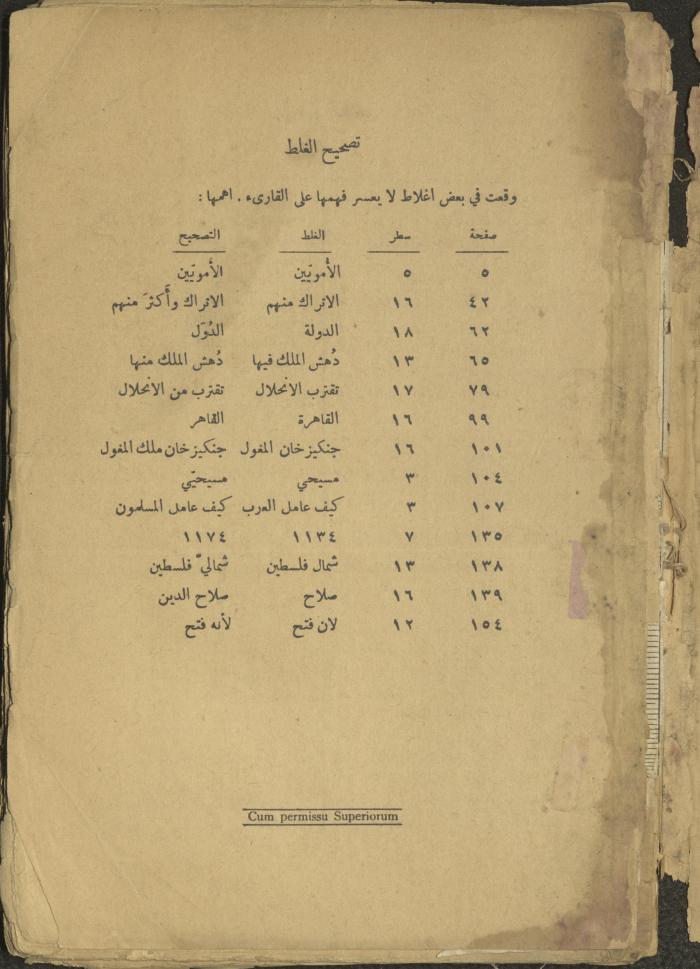 تصحيح الغلط
وقعت في بعض اغلاط لا يعسر فهمها على القارىء . اهمها :
صفحة سطر الغلط التصحيح
٥ ٥ الأُمويّين الأَمويّين
٤٢ ١٦ الاتراك منهم الاتراك وأَكثرَ منهم
٦٢ ١٨ الدولة الدُوَل
٦٥ ١٣ دُهش الملك فيها دُهش الملك منها
٧٩ ١٧ تقترب الانحلال تقترب من الانحلال
٩٩ ١٦ القاهرة القاهر
١٠١ ١٦ جنكيزخان المغول جنكيزخان ملك المغول
١٠٤ ٣ مسيحي مسيحيّي
١٠٧ ٣ كيف عامل العرب كيف عامل المسلمون
١٣٥ ٧ ١١٣٤ ١١٧٤
١٣٨ ١٣ شمال فلسطين شماليّ فلسطين
١٣٩ ١٦ صلاح صلاح الدين
١٥٤ ١٢ لان فتح لأنه فتح
Cum permissu Superiorum